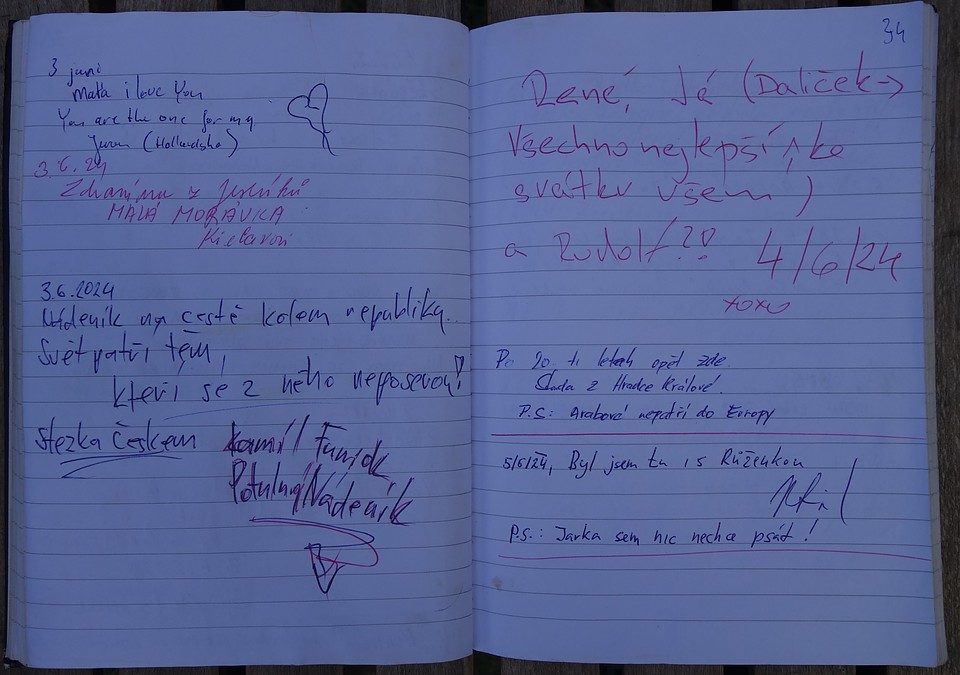 3 juni
Mata i love You
You are the one for my
(Hollandsko)
3.6.24
Zdravíme z Jeseníků
MALÁ MORÁVKA
3.6.2024
Nádeník na cestě kolem republiky..
Svět patří těm,
kteří se z něho neposerou!
Stezka Českem Kamil
Potulný Nádeník
34
René, Já (Daliček →
Všechno nejlepší ke
svátku všem )
a Rudolf?? 4/6/24
xoxo
Po 20 ti letech opět zde.
z Hradce Králové!
P.S.: Arabové nepatří do Evropy
5/6/24, Byl jsem tu i s Růženkou
P.S.: Jarka sem nic nechce psát!